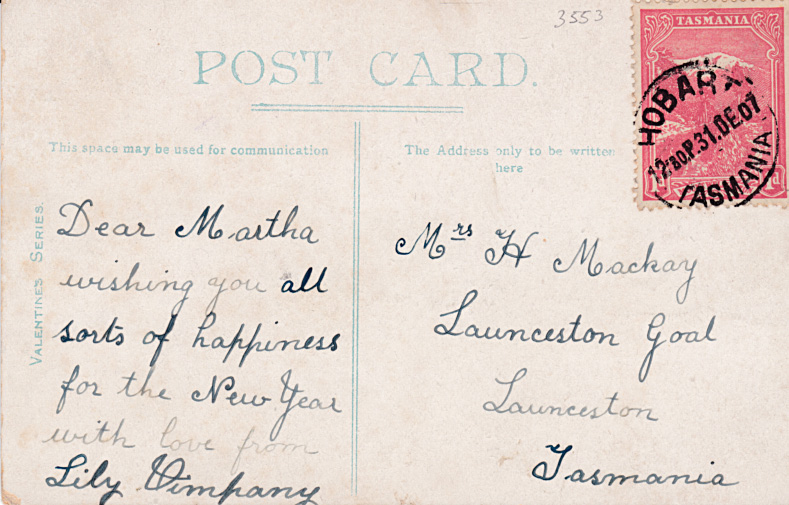 3553
TASMANIA
POST CARD.
HOBART
31.DE.07
TASMANIA
d
This space may be used for communication
The Address only to be written
here
VALENTINES SERIES.
Dear Martha
wishing you all
sorts of happiness
for the New Year
with love from
Lily Vimpany
Mrs H Mackay
Launceston Goal
Launceston
Tasmania